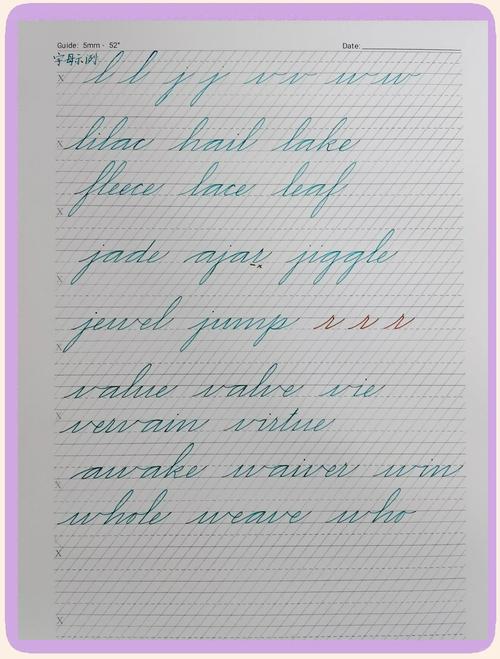 Guide: 5mm - 52° Date:
字母示例
l l j j v v w w
x
lilac hail lake
x
fleece lace leaf
x
jade ajar jiggle
x
jewel jump r r r
x
value valve vie
x
vervain virtue
awake waiver win
x
whole weave who
x
x